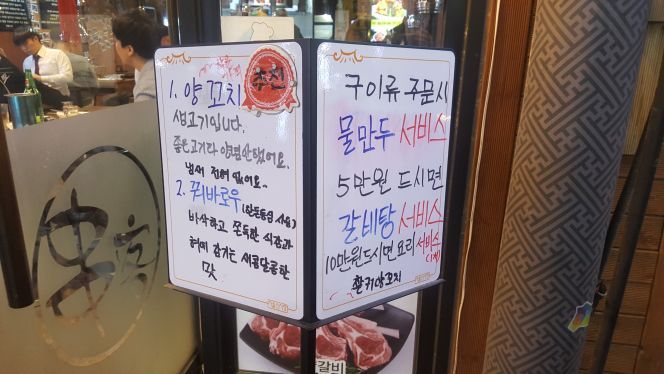 추천
1. 양꼬치
생고기입니다.
좋은고기라 양념안했어요.
냄새 전혀 없어요~
2. 꿔바로우
바삭하고 쫀득한 식감과
혀에 감기는 새콤달콤한
맛
구이류 주문시
물만두 서비스
5만원 드시면
갈비탕 서비스
10만원드시면 요리 서비스
환커양꼬치
갈비
串